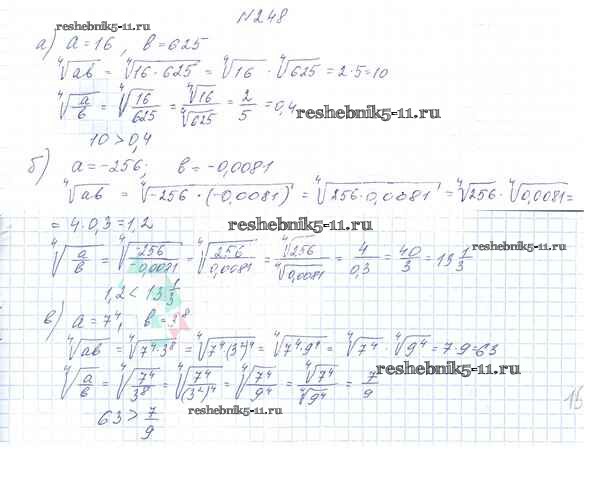 №248
reshebnik5-11.ru
а) a=16, b=625
⁴√ab = ⁴√16·625 = ⁴√16 · ⁴√625 = 2·5=10
⁴√a/b = ⁴√16/625 = ⁴√16/⁴√625 = 2/5 = 0,4
reshebnik5-11.ru
10>0,4
б) a=-256; b=-0,0081
⁴√ab = ⁴√-256·(-0,0081) = ⁴√256·0,0081 = ⁴√256 · ⁴√0,0081 =
= 4·0,3=1,2
reshebnik5-11.ru
⁴√a/b = ⁴√-256/-0,0081 = ⁴√256/0,0081 = ⁴√256/⁴√0,0081 = 4/0,3 = 40/3 = 13 1/3
reshebnik5-11.ru
1,2<13 1/3
в) a=7⁴, b=3⁸
⁴√ab = ⁴√7⁴·3⁸ = ⁴√7⁴(3²)⁴ = ⁴√7⁴·9⁴ = ⁴√7⁴ · ⁴√9⁴ = 7·9=63
⁴√a/b = ⁴√7⁴/3⁸ = ⁴√7⁴/(3²)⁴ = ⁴√7⁴/9⁴ = ⁴√7⁴/⁴√9⁴ = 7/9
reshebnik5-11.ru
63>7/9
reshebnik5-11.ru